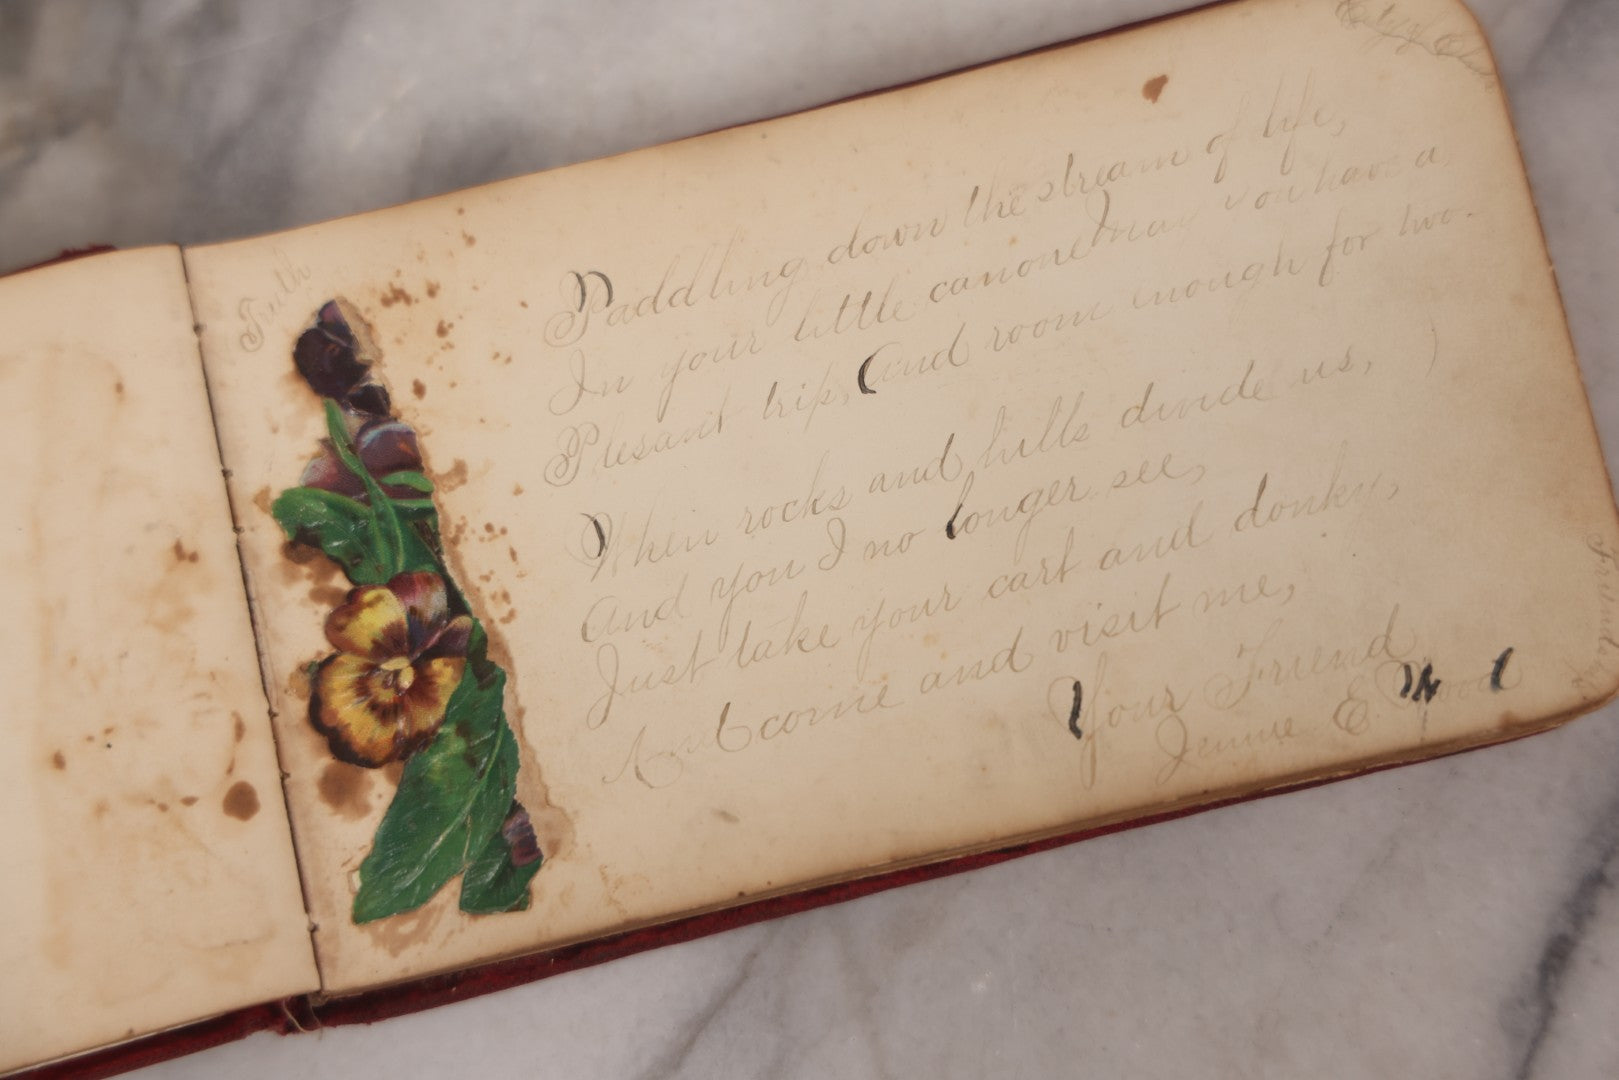 Truth
City of
Paddling down the stream of life,
In your little canone may you have a
Plesant trip, and room enough for two.
When rocks and hills divide us,
And you I no longer see,
Just take your cart and donky,
And come and visit me,
Your Friend
Jennie E Wood